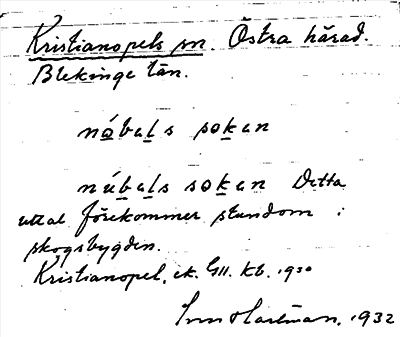 Kristianopels sn. Östra härad.
Blekinge län.
nábals sokan
núbals sokan Detta
uttal förekommer stundom i
skogsbygden.
Kristianopel, ek. GII. Kb. 1930
Hartman, 1932